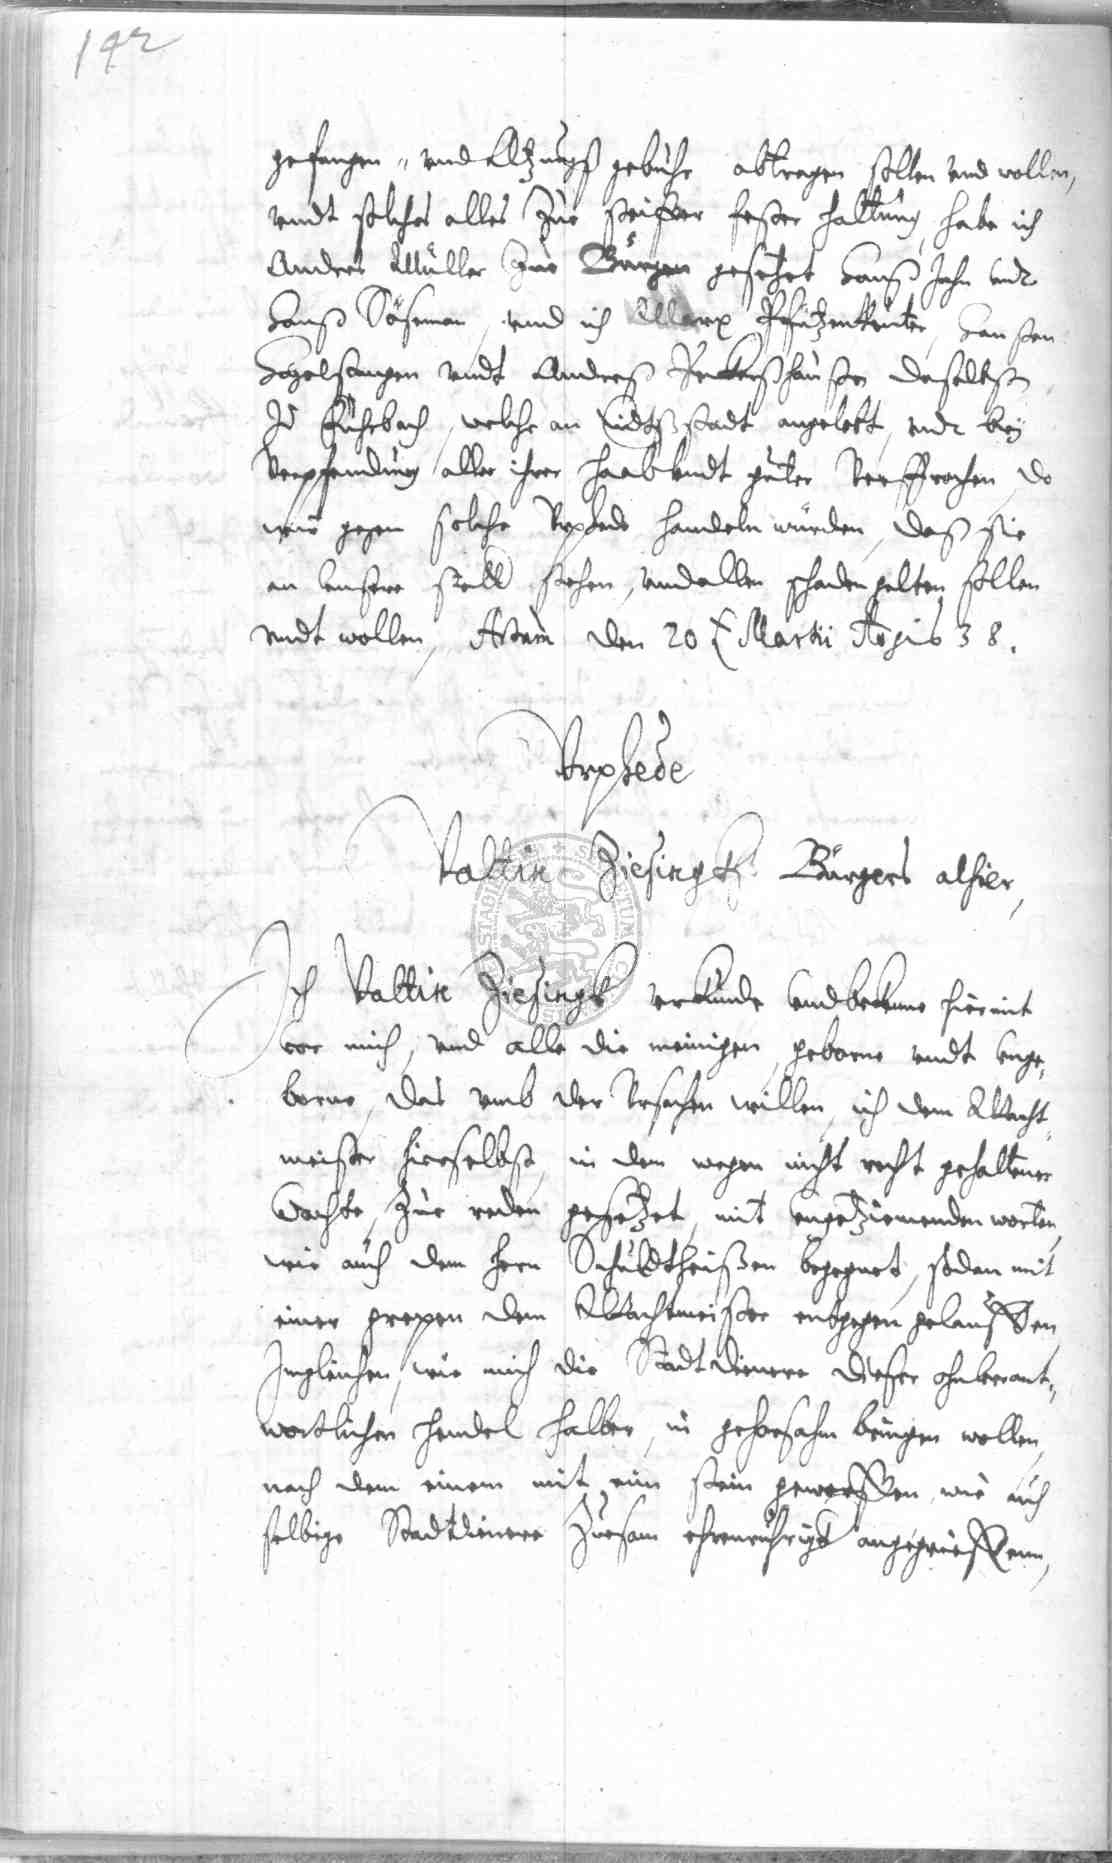 142
gefangen- und Atzungs gebühr abtragen sollen und wollen,
undt solches alles zue steiffer fester haltung, habe ich
Andres Müller zue Bürgen gesetzet Hanß Jahn undt
Hanß Söseman, und ich Marx, Hanßen
undt Andreß daselbst
zu Fuhrbach, welche an Eidtßstadt angelobt, undt bey
Verpfendung aller ihrer haab undt güter Versprochen, do
wir gegen solche Vrphede handeln würden, daß sie
an unsere stell stehen, und allen schaden gelten sollen
undt wollen, Actum den 20 t Martii Anno 38.
Vrphede
Valtin Ziesingk Bürgers alhier,
Ich Valtin Ziesingk urkunde und bekenne hiermit
vor mich, und alle die meinigen, geborne undt unge-
borne, das umb der Ursachen willen, ich dem Wacht-
meister hierselbst, in dem wegen nicht recht gehaltener
Wachte, zue reden gesetzet, mit ungeziemenden worten,
wie auch dem hern Schuldtheißen begegnet, sodan mit
einer dem Wachtmeister entgegen gelauffen,
Imgleichen, wie mich die Stadtdienere dieser ohnverant-
wortlichen hendel halber, in gehorsahm bringen wollen,
nach dem einem mit ein stein geworffen, wie auch
selbige Stadtdienere zuesam ehrenrührigk angegrieffenn,